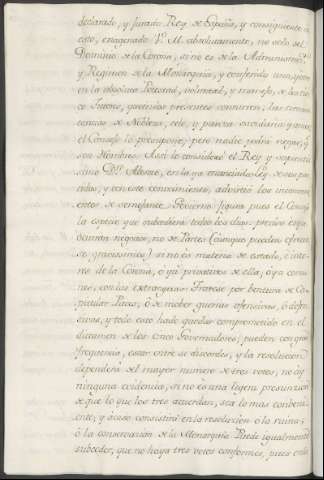 declarado, y jurado Rey de España, y consiguiente a
esto, enagenado V. M. absolutamente, no solo del
Dominio de la Corona, si no es de la Administraz.on
y Regimen de la Monarquia, y conferido uno, y otro
en la absoluta Potestad, voluntad, y manejo, de los cin
co Tutores, que en los presentes concurren, las circuns
tancias de Nobleza, zelo, y pureza
el Consejo lo presupone; pero nadie podra negar, q.e
son Hombres. Assi lo considerò el Rey y sapientis
simo D.n Alonso, en la ya enunciada Ley de
y con este conocimiento, advirtió los inconveni
entes de semejante Govierno, figura pues el Consejo
la especie que subcederà todos los dias. preciso es q.e
ocurran negocios, no de Partes (aunque pueden ofrecer
se gravissimos) si no es materia de estado, ò inte
res de la Corona, ò ya privativos de ella, ò ya comu
nes, con las extrangeras. Tratese por ventura de Ca
pitular Pazes, ò de mober guerras ofensivas, ò defen
sivas, y todo esto hade quedar comprometido en el
dictamen de los Cinco Governadores; pueden con gran
frequencia, estar entre si discordes, y la resolucion
dependerà del mayor numero de tres votos, no ay
ninguna evidencia, si no es una legera presuncion
de que lo que los tres acuerdan, sea lo mas conbeni
ente; y acaso consistirà en la resolucion ò la ruina,
ò la conservacion de la Monarquia. Puede igualmente
subceder, que no haya tres votos conformes, pues en la